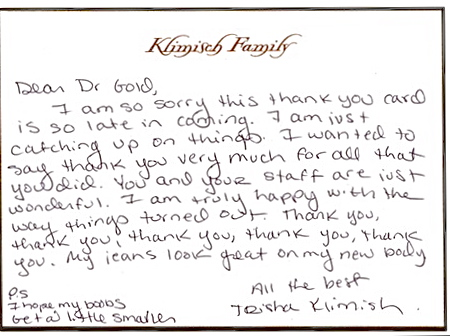 Klimisch Family
Dear Dr Gold,
I am so sorry this thank you card
is so late in coming. I am just
catching up on things. I wanted to
say thank you very much for all that
you did. You and your staff are just
wonderful. I am truly happy with the
way things turned out. Thank you,
thank you, thank you, thank you, thank
you. My jeans look great on my new body
All the best
Trisha Klimish.
P.S
I hope my boobs
Get a little smaller